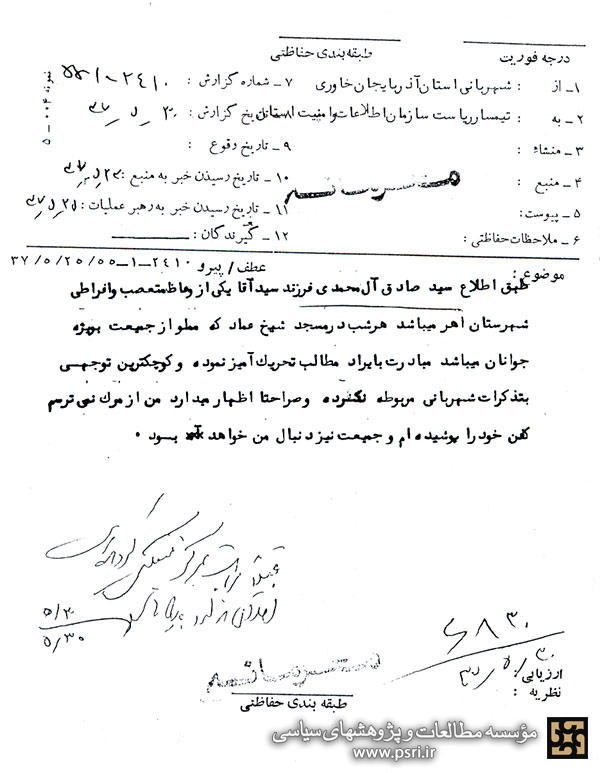 درجه فوریت
طبقه بندی حفاظتی
۱ـ از : شهربانی استان آذربایجان خاوری
۷ ـ شماره گزارش : ۲۴۱۰-۱-۵۵
۲ـ به : تیمسار ریاست سازمان اطلاعات و امنیت استان
۸ـ تاریخ گزارش
۳ ـ منشاء :
۹ ـ تاریخ وقوع :
۴ ـ منبع :
۱۰ ـ تاریخ رسیدن خبر به منبع :
خیلی محرمانه
۵ ـ پیوست:
۱۱ ـ تاریخ رسیدن خبر به رهبر عملیات :
۶ ـ ملاحظات حفاظتی :
۱۲ ـ گیرندگان :
نمونه ۰۰۴ ـ ۵
عطف/ پیرو ۲۴۱۰-۱-۵۵/۲۵/۵/۳۷
موضوع :
طبق اطلاع سید صادق آل محمدی فرزند سید آقا یکی از وعاظ متعصب وافراطی
شهرستان اهر میباشد هرشب در مسجد شیخ عماد که مملو از جمعیت بویژه
جوانان میباشد مبادرت بایراد مطالب تحریک آمیز نموده و کوچکترین توجهی
بتذکرات شهربانی مربوطه نکرده و صراحتا اظهار میدارد من از مرگ نمی ترسم
کفن خود را پوشیده ام و جمعیت نیز دنبال من خواهد بود .
۵/۳۰
ارزیابی :
نظریه :
طبقه بندی حفاظتی
مؤسسه مطالعات و پژوهشهای سیاسی
www.psri.ir